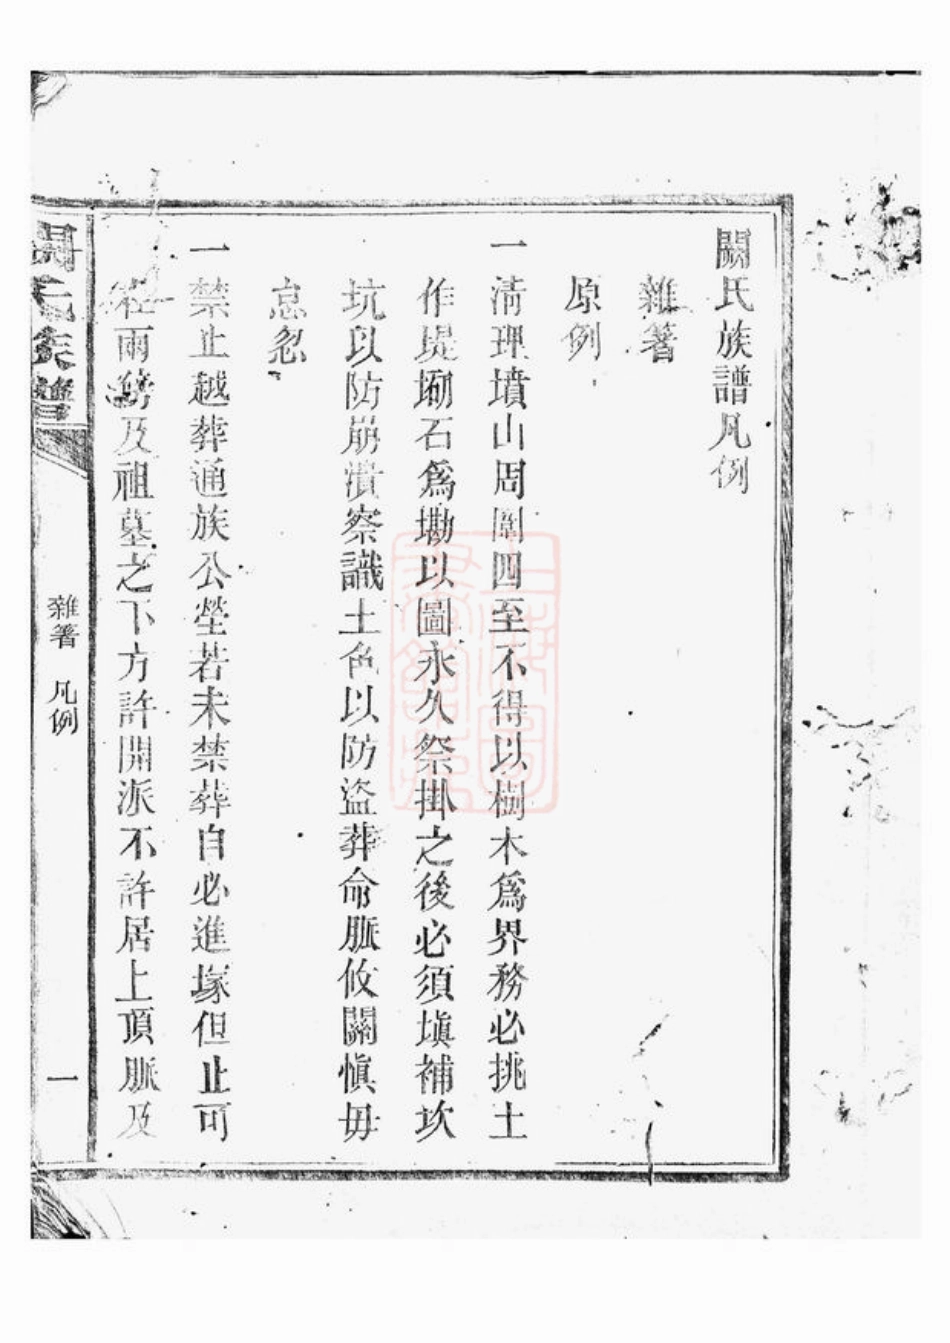 闕氏族譜凡例
雜著
原例
一清理墳山周圍四至不得以樹木爲界務必挑土
作堤堋石爲墈以圖永久祭掛之後必須塡補坎
坑以防崩潰察識土色以防盜葬命脈攸關愼毋
怠忽
一禁止越葬通族公塋若未禁葬自必進塚但止可
在兩旁及祖墓之下方許開派不許居上頂脈及
闕氏族譜
雜著 凡例
一